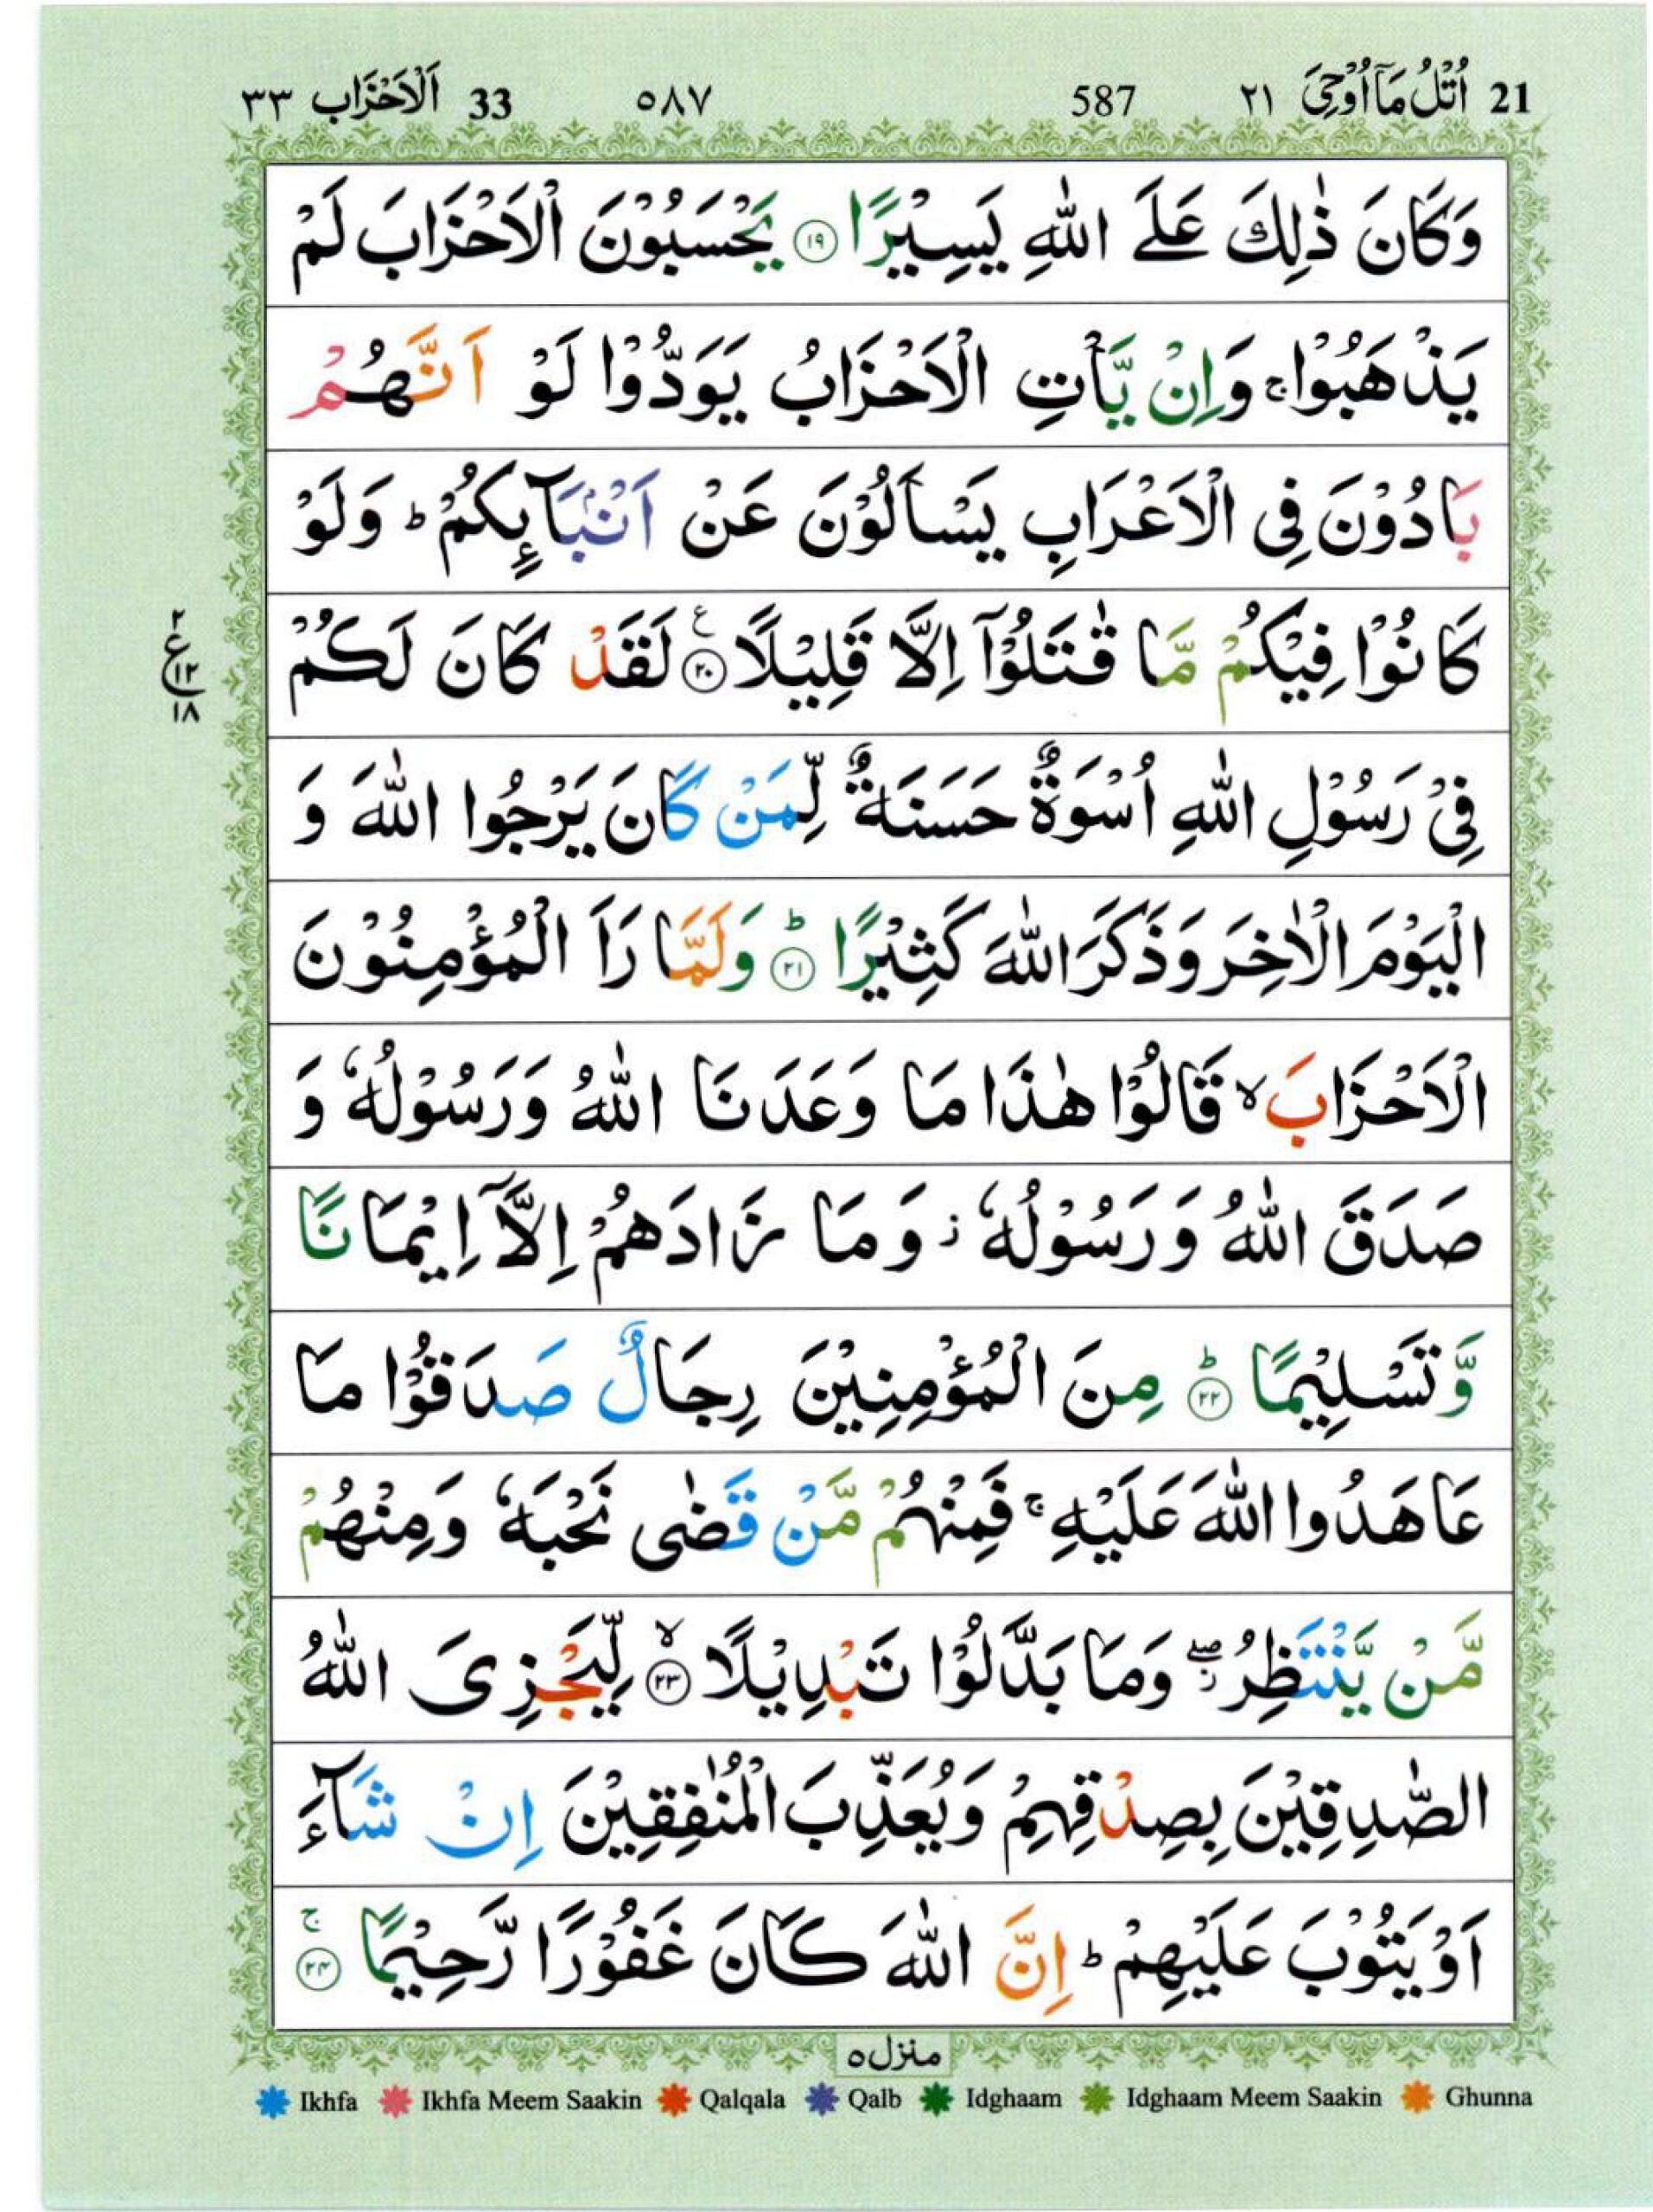 21 اُتْلُ مَآ اُوْحِیَ ٢١ 587 ٥٨٧ 33 اَلْاَحْزَاب ٣٣
وَكَانَ ذٰلِكَ عَلَى اللّٰهِ يَسِيْرًا ۝١٩ يَحْسَبُوْنَ الْاَحْزَابَ لَمْ
يَذْهَبُوْا ۚ وَاِنْ يَّاْتِ الْاَحْزَابُ يَوَدُّوْا لَوْ اَنَّهُمْ
بَادُوْنَ فِى الْاَعْرَابِ يَسْاَلُوْنَ عَنْ اَنْۢبَآئِكُمْ ؕ وَلَوْ
كَانُوْا فِيْكُمْ مَّا قٰتَلُوْٓا اِلَّا قَلِيْلًا ۝٢٠ ع لَقَدْ كَانَ لَكُمْ
٢
ع ١٢
١٨
فِىْ رَسُوْلِ اللّٰهِ اُسْوَةٌ حَسَنَةٌ لِّمَنْ كَانَ يَرْجُوا اللّٰهَ وَ
الْيَوْمَ الْاٰخِرَ وَذَكَرَ اللّٰهَ كَثِيْرًا ؕ ۝٢١ وَلَمَّا رَاَ الْمُؤْمِنُوْنَ
الْاَحْزَابَ ۙ قَالُوْا هٰذَا مَا وَعَدَنَا اللّٰهُ وَرَسُوْلُهٗ وَ
صَدَقَ اللّٰهُ وَرَسُوْلُهٗ ز وَمَا زَادَهُمْ اِلَّآ اِيْمَانًا
وَّتَسْلِيْمًا ؕ ۝٢٢ مِنَ الْمُؤْمِنِيْنَ رِجَالٌ صَدَقُوْا مَا
عَاهَدُوا اللّٰهَ عَلَيْهِ ۚ فَمِنْهُمْ مَّنْ قَضٰى نَحْبَهٗ وَمِنْهُمْ
مَّنْ يَّنْتَظِرُ ۖز وَمَا بَدَّلُوْا تَبْدِيْلًا ۙ ۝٢٣ لِّيَجْزِىَ اللّٰهُ
الصّٰدِقِيْنَ بِصِدْقِهِمْ وَيُعَذِّبَ الْمُنٰفِقِيْنَ اِنْ شَآءَ
اَوْ يَتُوْبَ عَلَيْهِمْ ؕ اِنَّ اللّٰهَ كَانَ غَفُوْرًا رَّحِيْمًا ۚ ۝٢٤
منزل ٥
Ikhfa Ikhfa Meem Saakin Qalqala Qalb Idghaam Idghaam Meem Saakin Ghunna